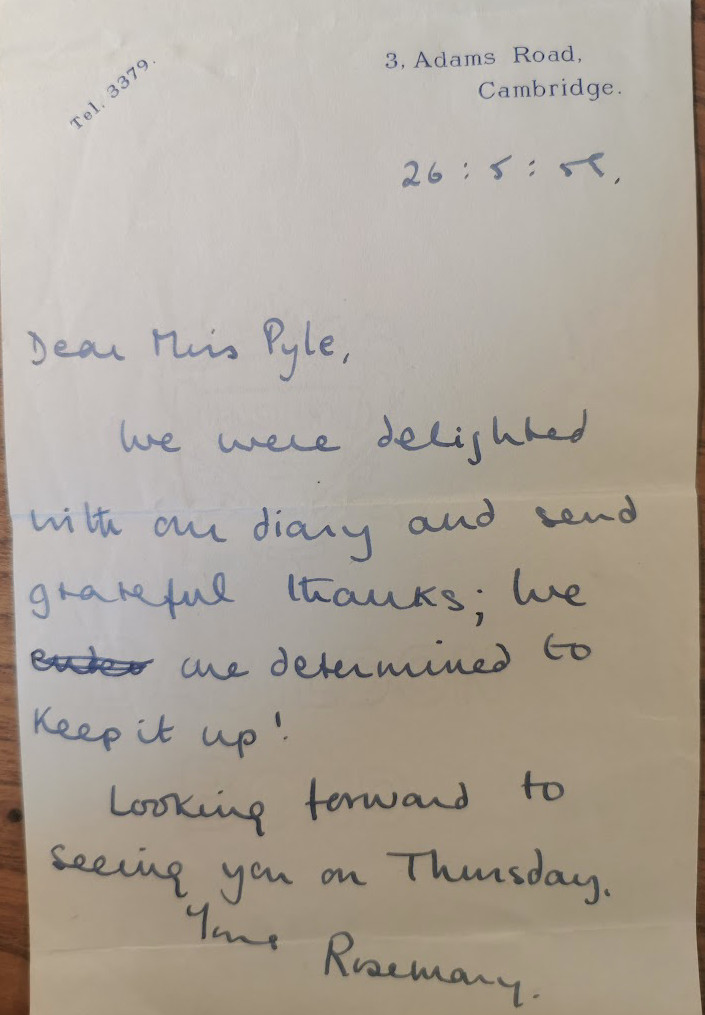 Tel. 3379.
3, Adams Road,
Cambridge.
26 : 5 : 58.
Dear Miss Pyle,
We were delighted
with our diary and send
grateful thanks; We
are determined to
Keep it up!
Looking forward to
seeing you on Thursday.
Yours Rosemary.